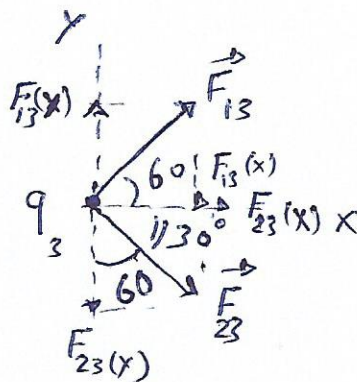 Y
F₁₃(x) F₁₃
60 F₁₃(x)
q₃ F₂₃(x) X
30°
60 F₂₃
F₂₃(x)